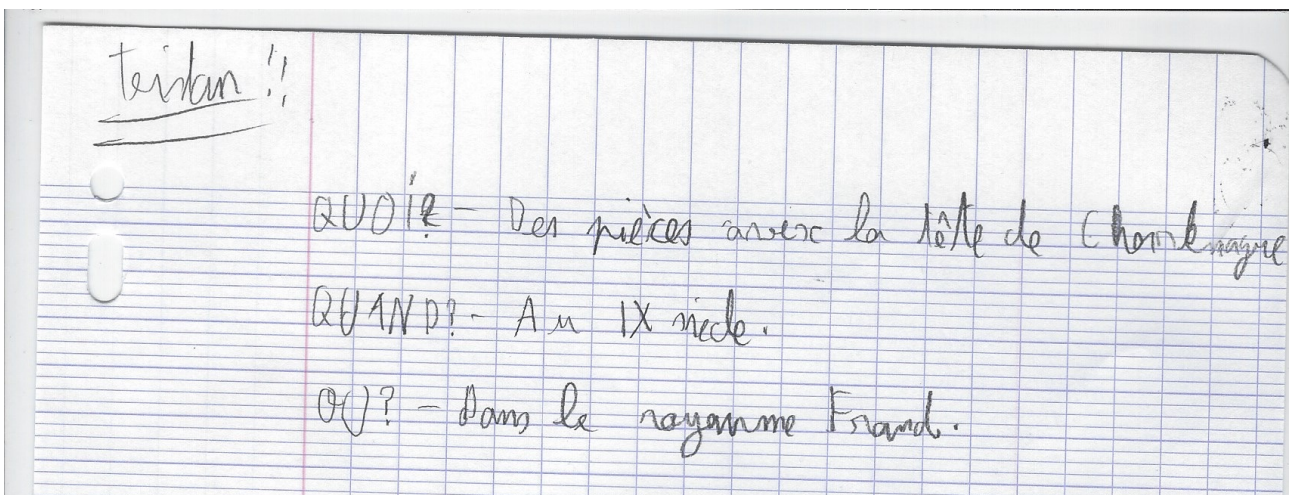 Tristan !!
QUOI? - Des pièces avec la tête de Charlemagne
QUAND? - Au IX siècle.
OÙ? - Dans le royaume Franc.